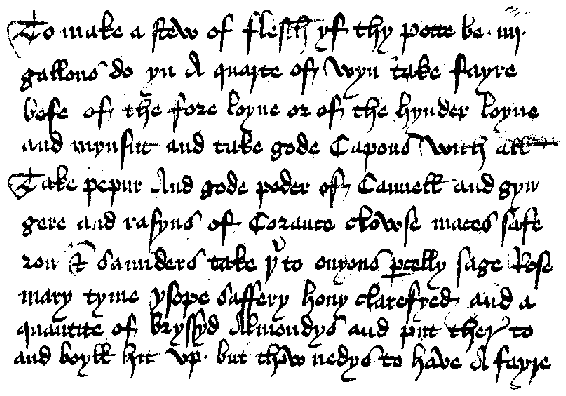 To make a stew of flesch yf thy potte be iiij
gallons do yn A quarte of wyn take fayre
befe of the fore loyne or of the hynder loyne
and mynsut and take gode Capons with all
Take pepur And gode poder of Canell and gyn
gere and rasyns of Coraute clowse maces safe
ron & saunders take yr to onyons percelly sage Rose
mary tyme ysope saffery hony clarefyed and a
quantite of bryssyd Almondys and put ther to
and boyll hit vp but thow nedys to have A fayre